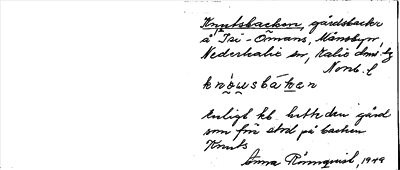 Knutsbacken, gårdsbacke
å Isi-Ömans, Månsbyn,
Nederkalix sn, Kalix
Norrb. l
Enligt kb. hette den gård
som för stod på backen
Knuts
Anna Rönnquist, 1949